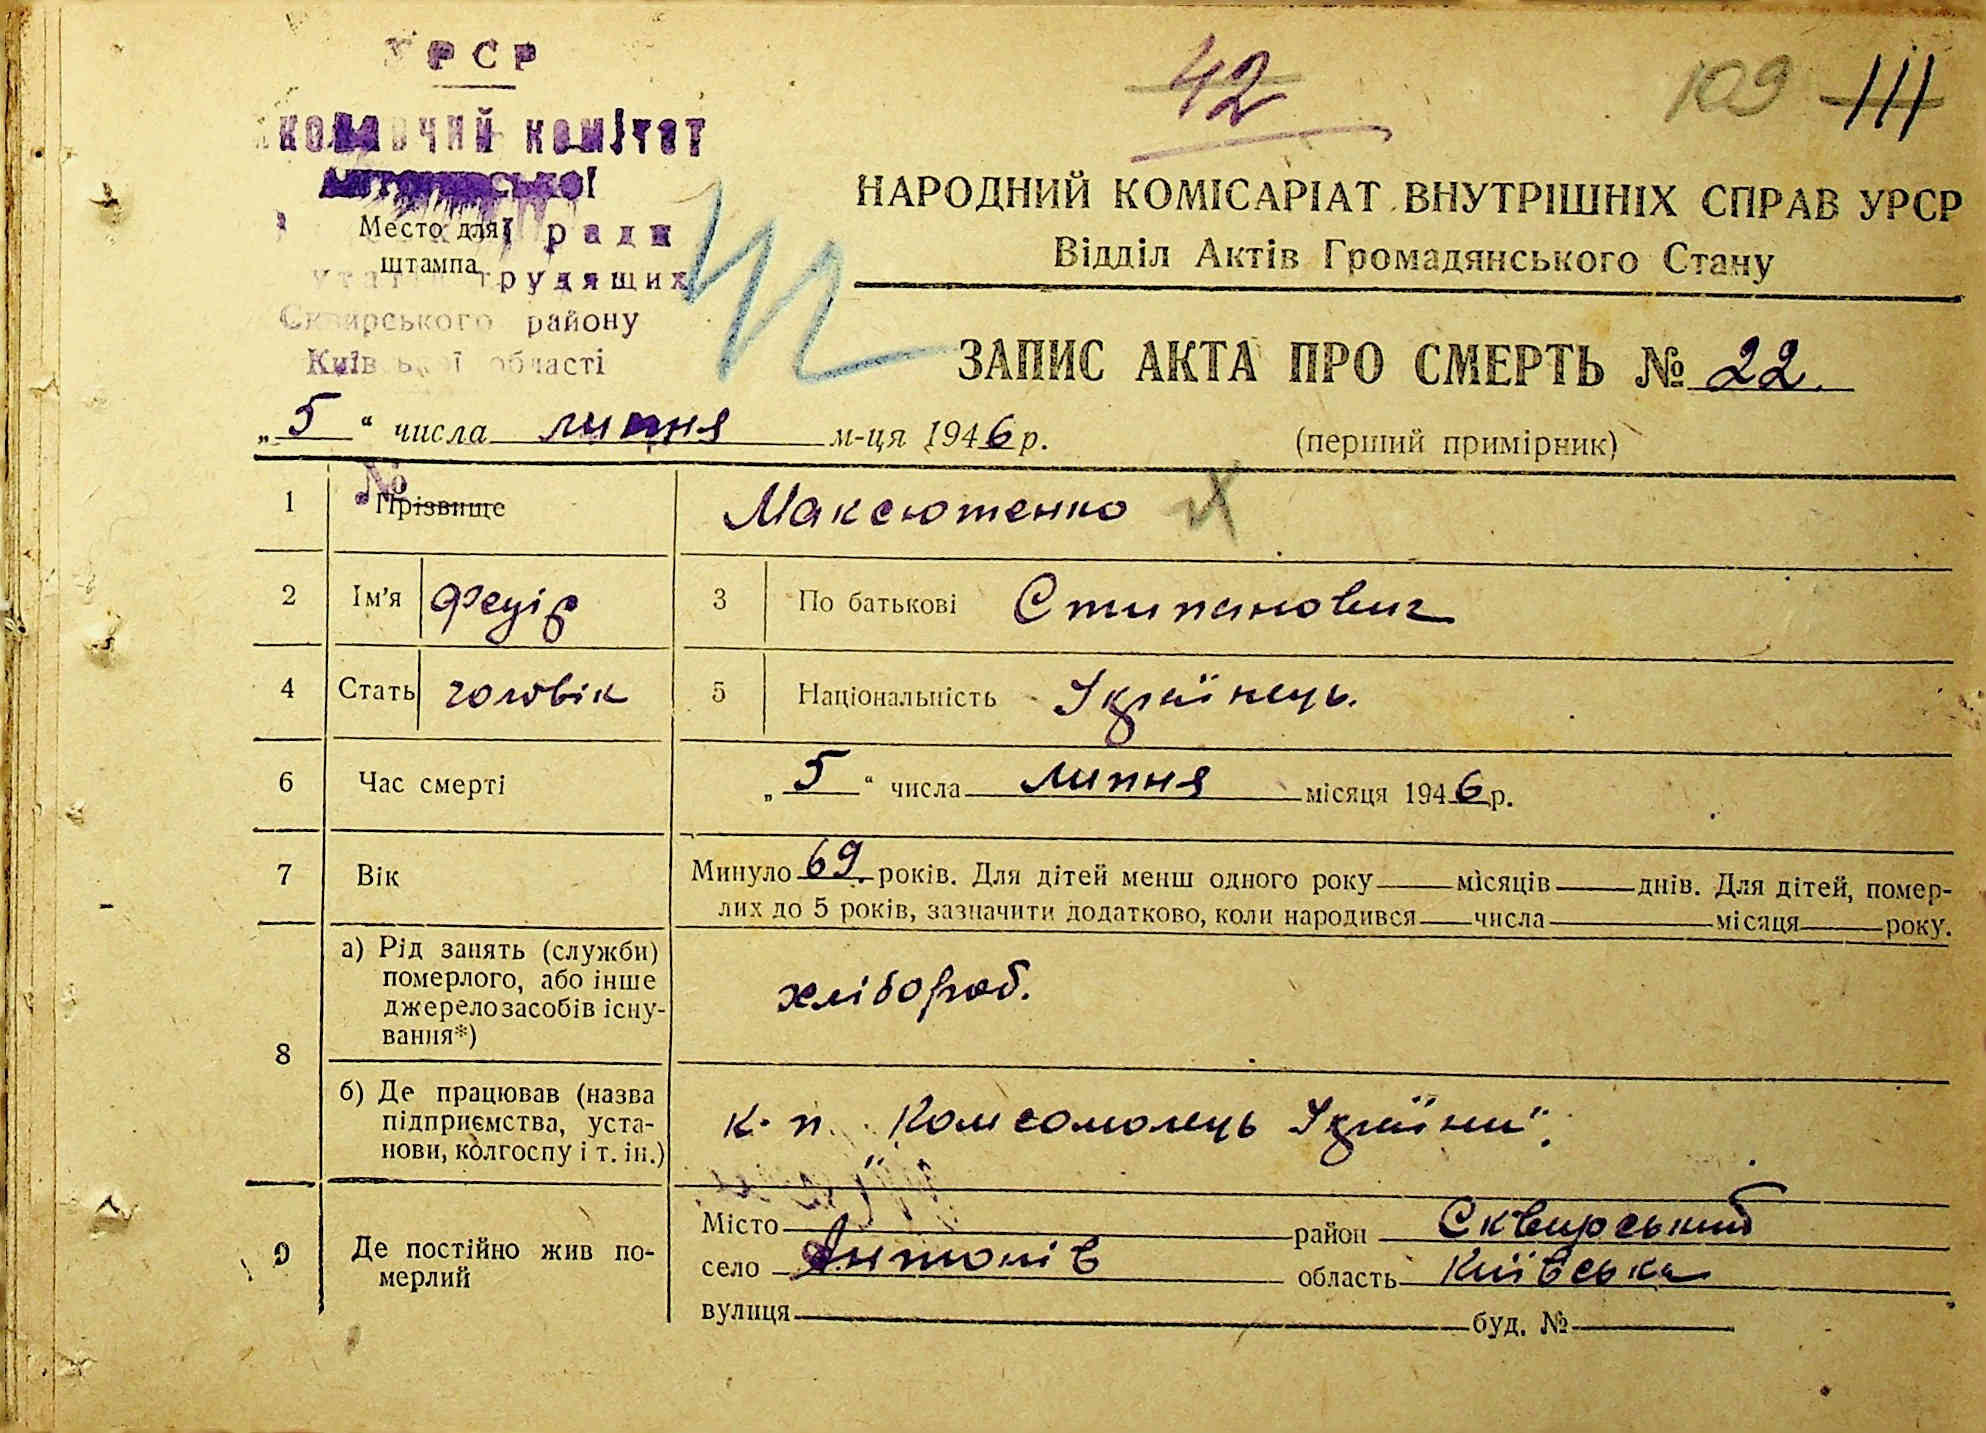 УРСР
42
109 111
виконавчий комітет
Антонівської
Место для
штампа
ради
трудящих
Сквирського району
Київської області
42
НАРОДНИЙ КОМІСАРІАТ ВНУТРІШНІХ СПРАВ УРСР
Відділ Актів Громадянського Стану
ЗАПИС АКТА ПРО СМЕРТЬ № 22.
„5" числа липня м-ця 1946 р. (перший примірник)
№
1 Прізвище Максютенко
2 Ім'я Федір 3 По батькові Стипанович
4 Стать чоловік 5 Національність Українець.
6 Час смерті „5" числа липня місяця 1946 р.
7 Вік Минуло 69 років. Для дітей менш одного року місяців днів. Для дітей, помер-
лих до 5 років, зазначити додатково, коли народився числа місяця року.
8 а) Рід занять (служби)
померлого, або інше
джерело засобів існу-
вання*)
хлібороб.
б) Де працював (назва
підприємства, уста-
нови, колгоспу і т. ін.)
к-п. Комсомолець України".
9 Де постійно жив по-
мерлий
Місто район Сквирський
село Антонів область Київська
вулиця буд. №